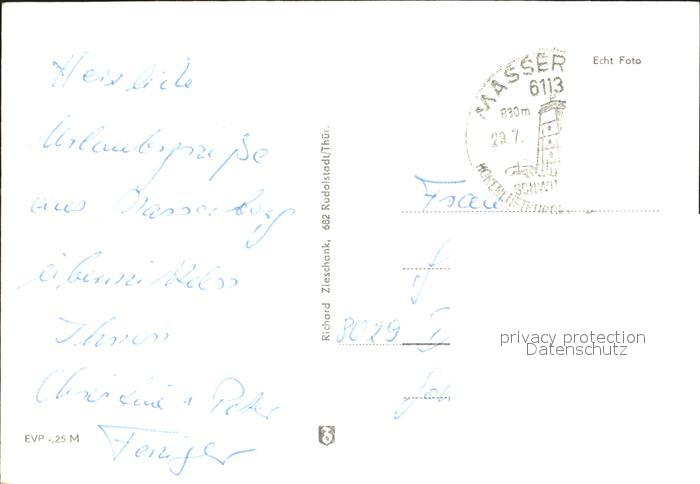 Herzliche
Urlaubsgrüße
aus Masserberg
übermitteln
Ihnen
Christine + Peter
EVP -,25 M
Richard Zieschank, 682 Rudolstadt/Thür.
Echt Foto
MASSER
6113
830m
29.7.
SCHWI
Frau
8029 D
privacy protection
Datenschutz